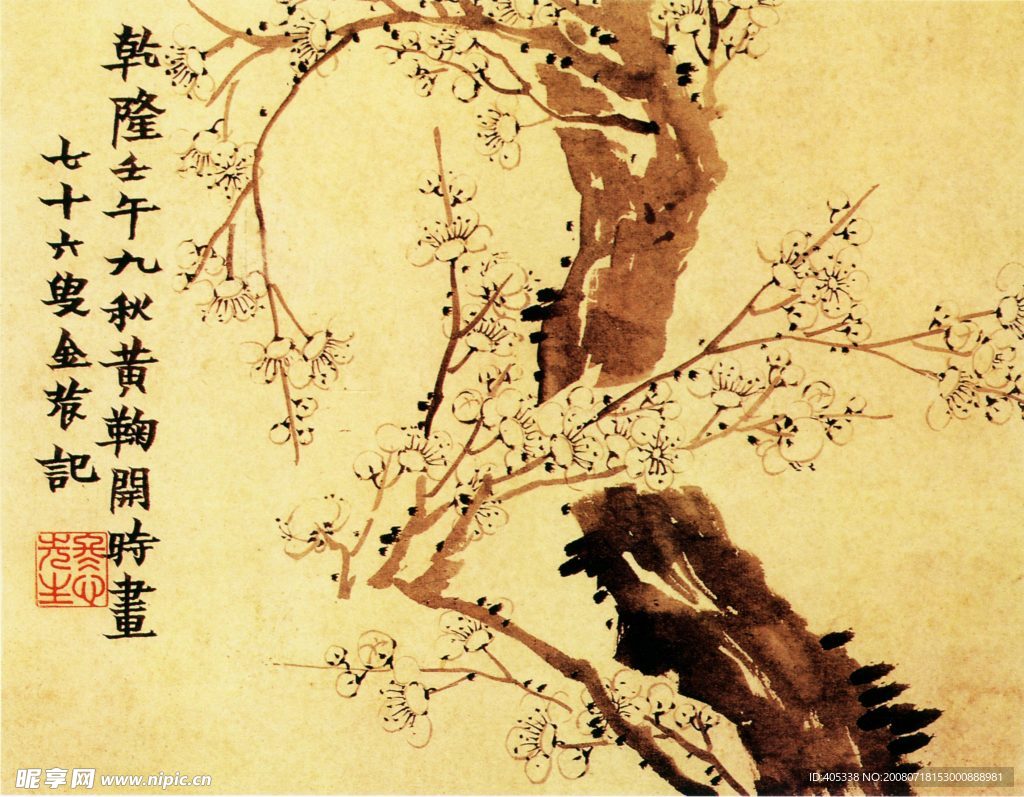 乾隆壬午九秋黄鞠開時畫
七十六叟金農記
冬心
先生
昵享网 www.nipic.cn
ID:405338 NO:20080718153000888981